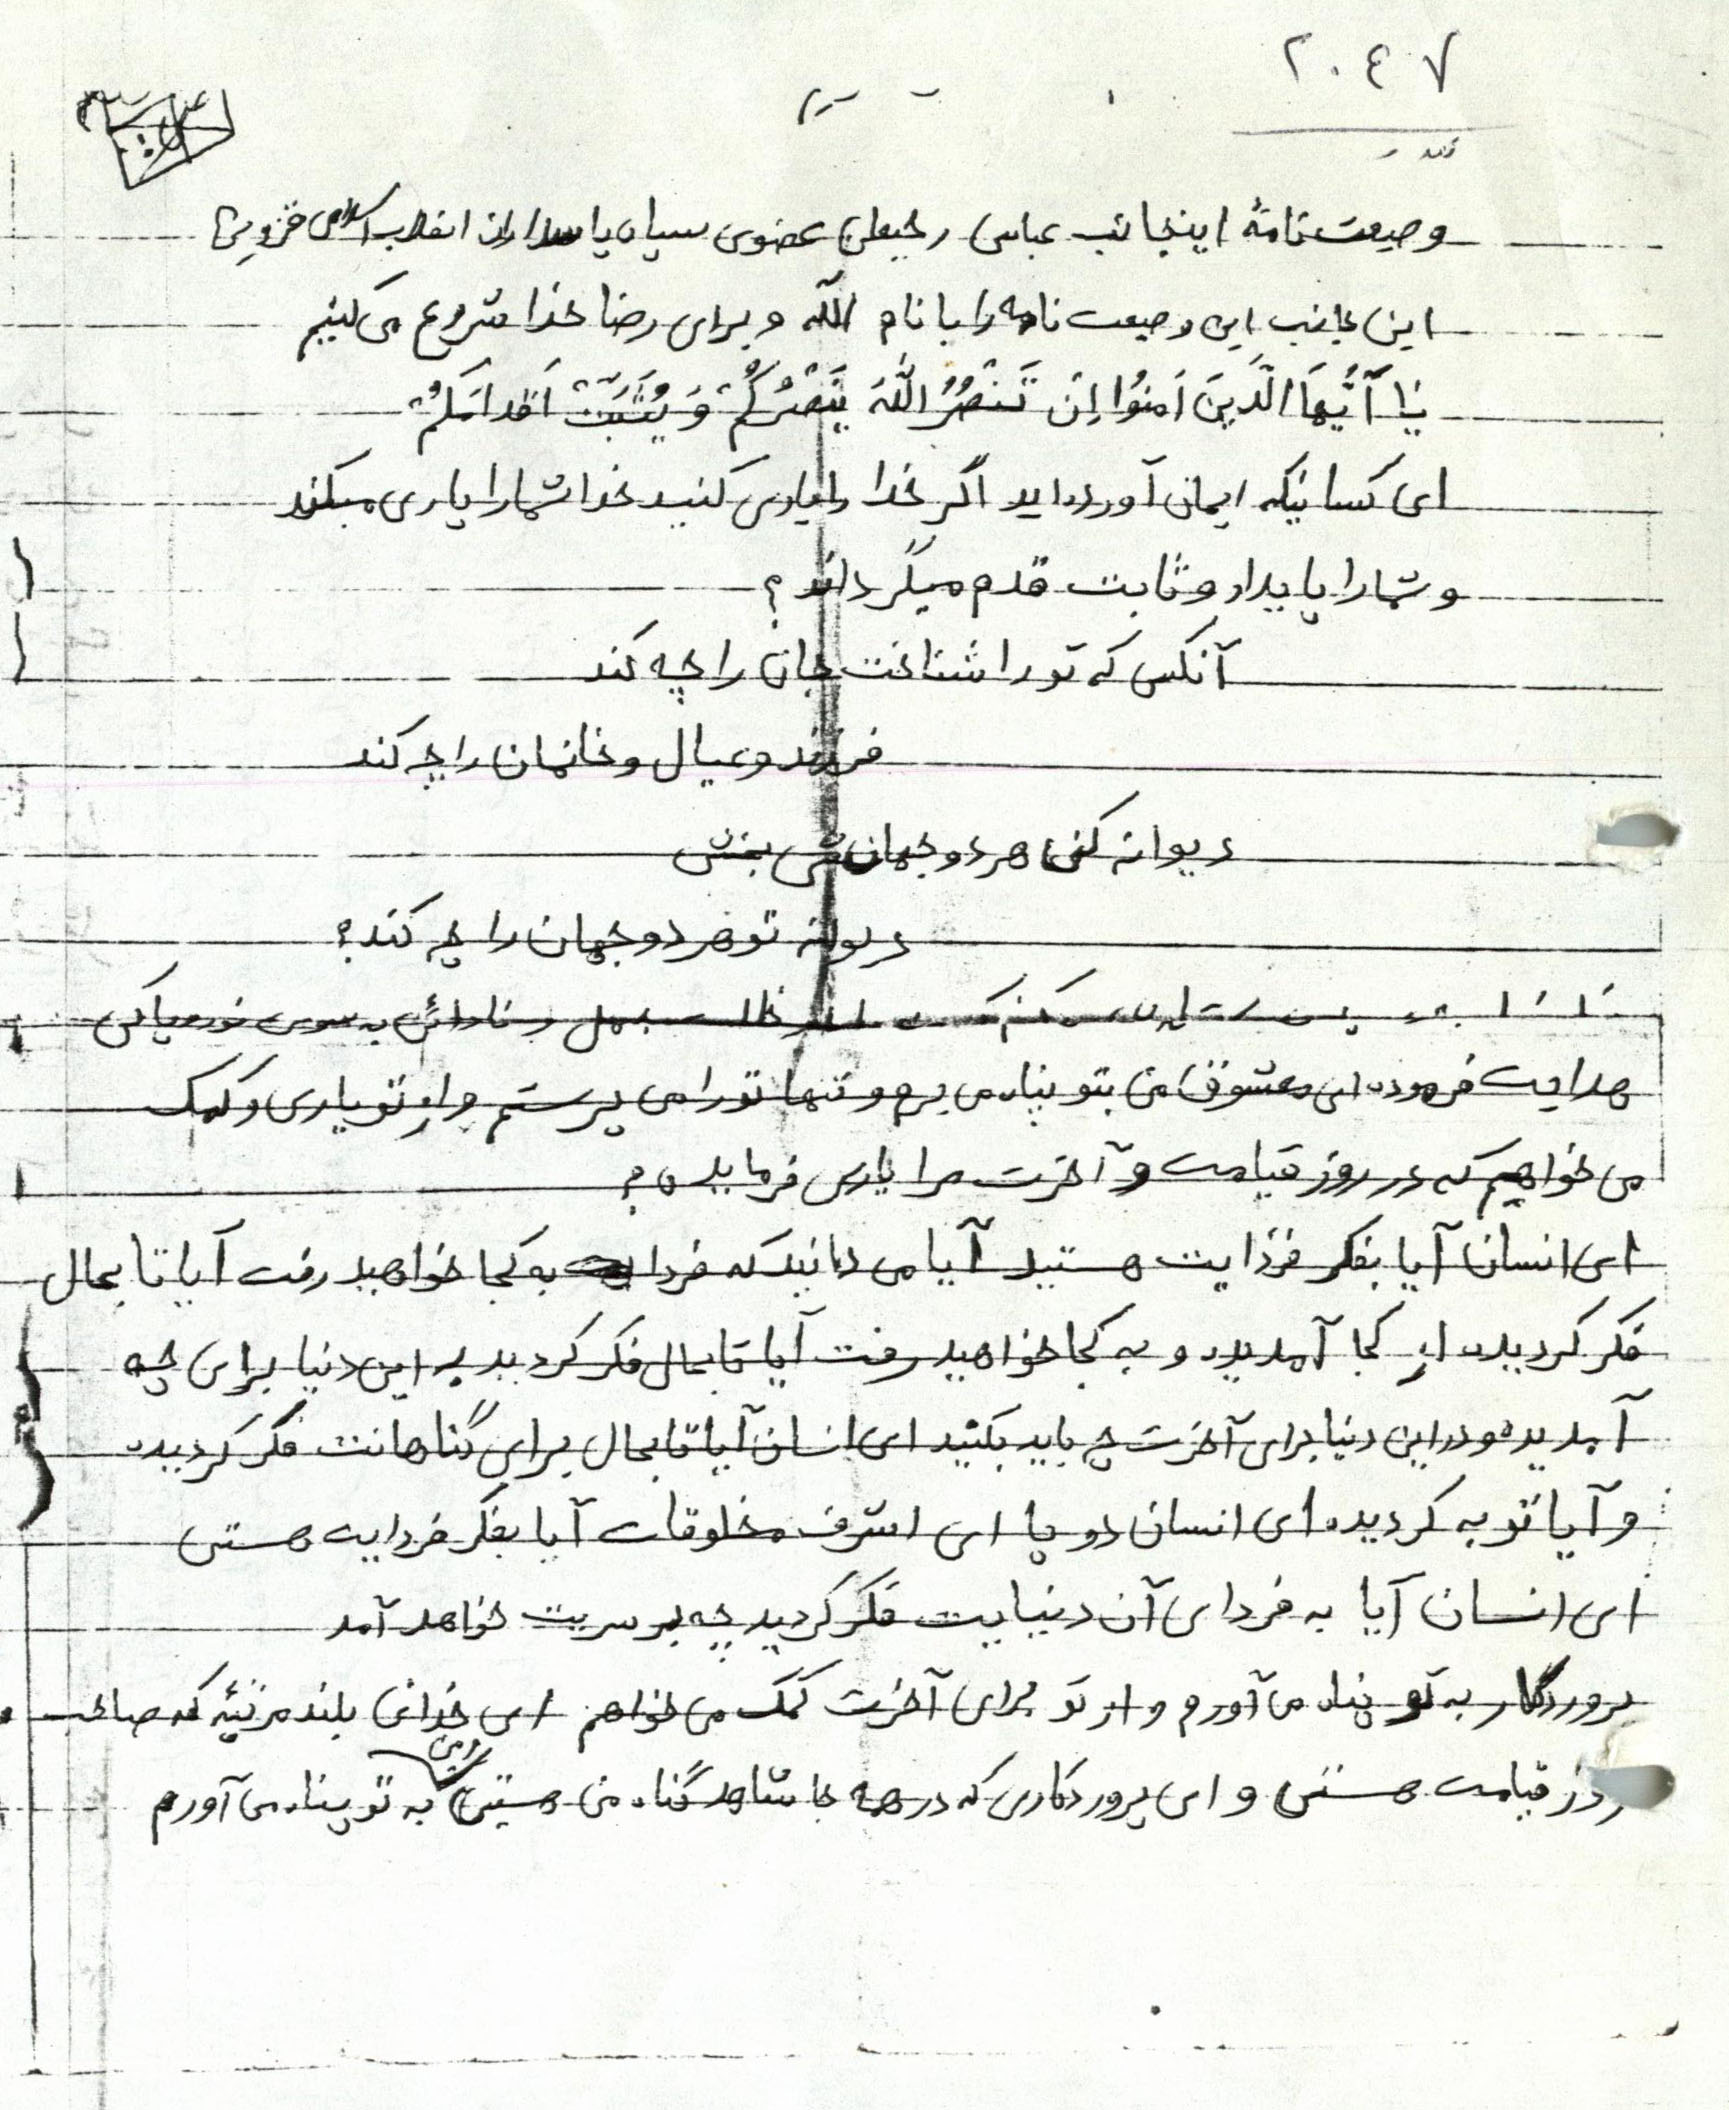 ٢٠٤٧
وصیعت نامهٔ اینجانب عباس رجبعلی عضوی سپاه پاسداران انقلاب اسلامی قزوین
این جانب این وصیعت نامه را با نام الله و برای رضا خدا شروع می کنیم
یا اَیُّهَا الَّذینَ اَمَنُوا اِن تَنْصُرُ اللهَ یَنْصُرْکُمْ وَ یُثَبِّتْ اَقْدامَکُمْ
ای کسانیکه ایمان آورده اید اگر خدا را یاری کنید خدا شما را یاری میکند
و شما را پایدار و ثابت قدم میگرداند؟
آنکس که تو را شناخت جان را چه کند
فرزند و عیال و خانمان را چه کند
دیوانه کنی هر دو جهانش بخشی
دیوانه تو هر دو جهان را چه کند؟
جهل و نادانی به سوی نور و پاکی
هدایت فرموده ای معشوق من بتو پناه می برم و تنها تو را می پرستم و از تو یاری و کمک
می خواهیم که در روز قیامت و آخرت مرا یاری فرمایید؟
ای انسان آیا بفکر فردایت هستید آیا می دانید که فردا به کجا خواهید رفت آیا تا بحال
فکر کردید از کجا آمدید و به کجا خواهید رفت آیا تا بحال فکر کردید به این دنیا برای چه
آمدیده و در این دنیا برای آخرت چه باید بکنید ای انسان آیا تا بحال برای گناهانت فکر کردیده
و آیا توبه کردیده ای انسان دو پا ای اشرف مخلوقات آیا بفکر فردایت هستی
ای انسان آیا به فردای آن دنیایت فکر کردید چه بر سریت خواهد آمد
پروردگار به تو پناه می آورم و از تو برای آخرت کمک می خواهم ای خدای بلند مرتبه که صاحب
روز قیامت هستی و ای پروردگاری که در همه جا شاهد گناه من هستی به تو پناه می آورم